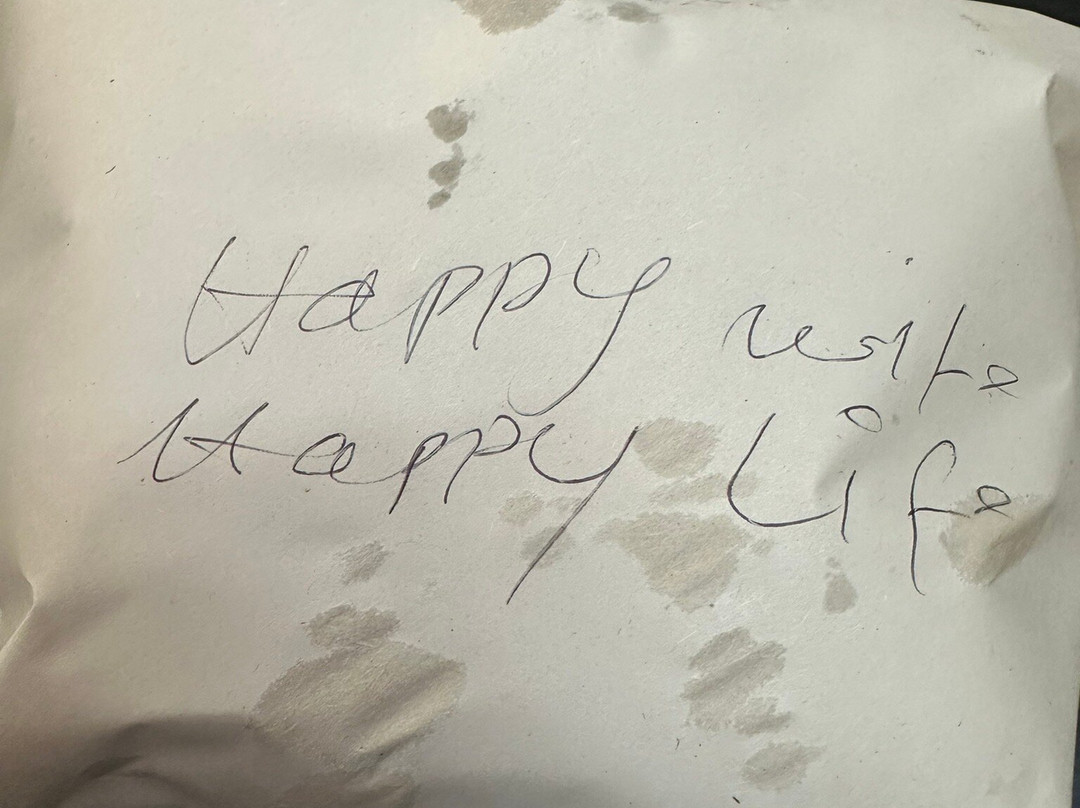 Happy wife
Happy Life